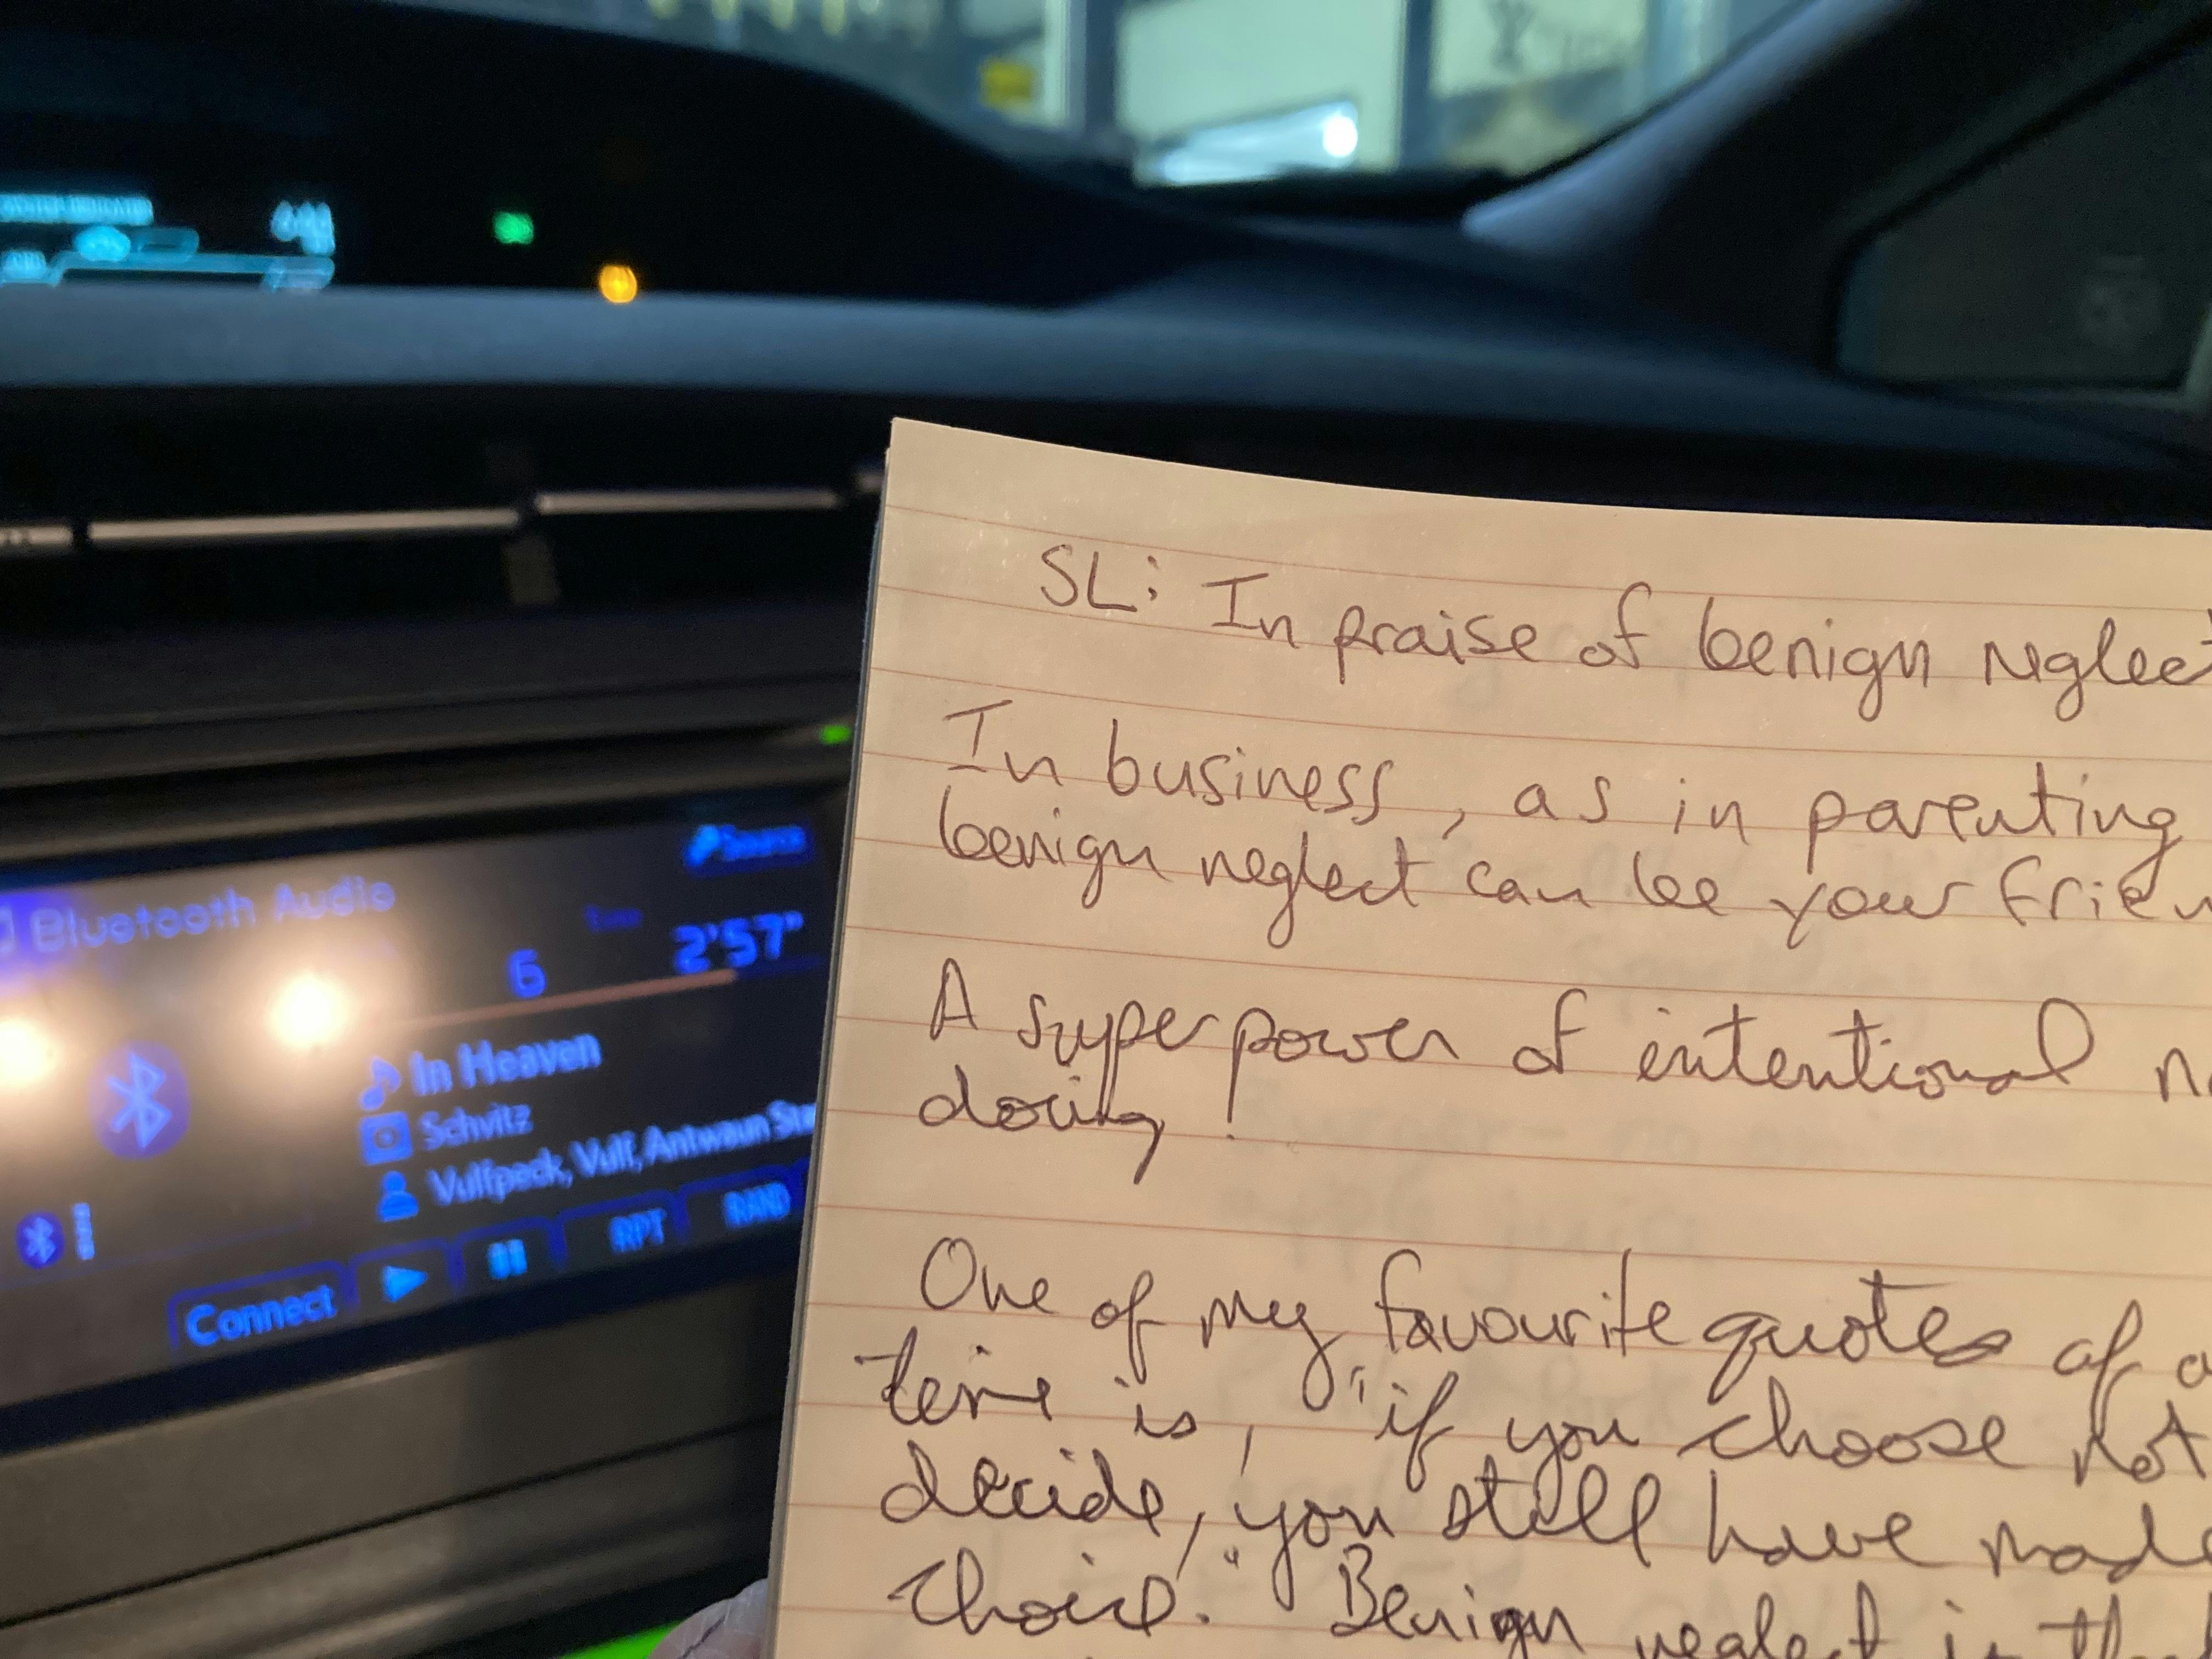 Bluetooth Audio
Source
6
2'57"
In Heaven
Schvitz
Vulfpeck, Vulf, Antwaun Sta
Connect
RPT
RAND
SL: In praise of benign neglect
In business, as in parenting
benign neglect can be your frien
A superpower of intentional n
doing!
One of my favourite quotes of a
time is, "if you choose not
decide, you still have made
choice." Benign neglect is th